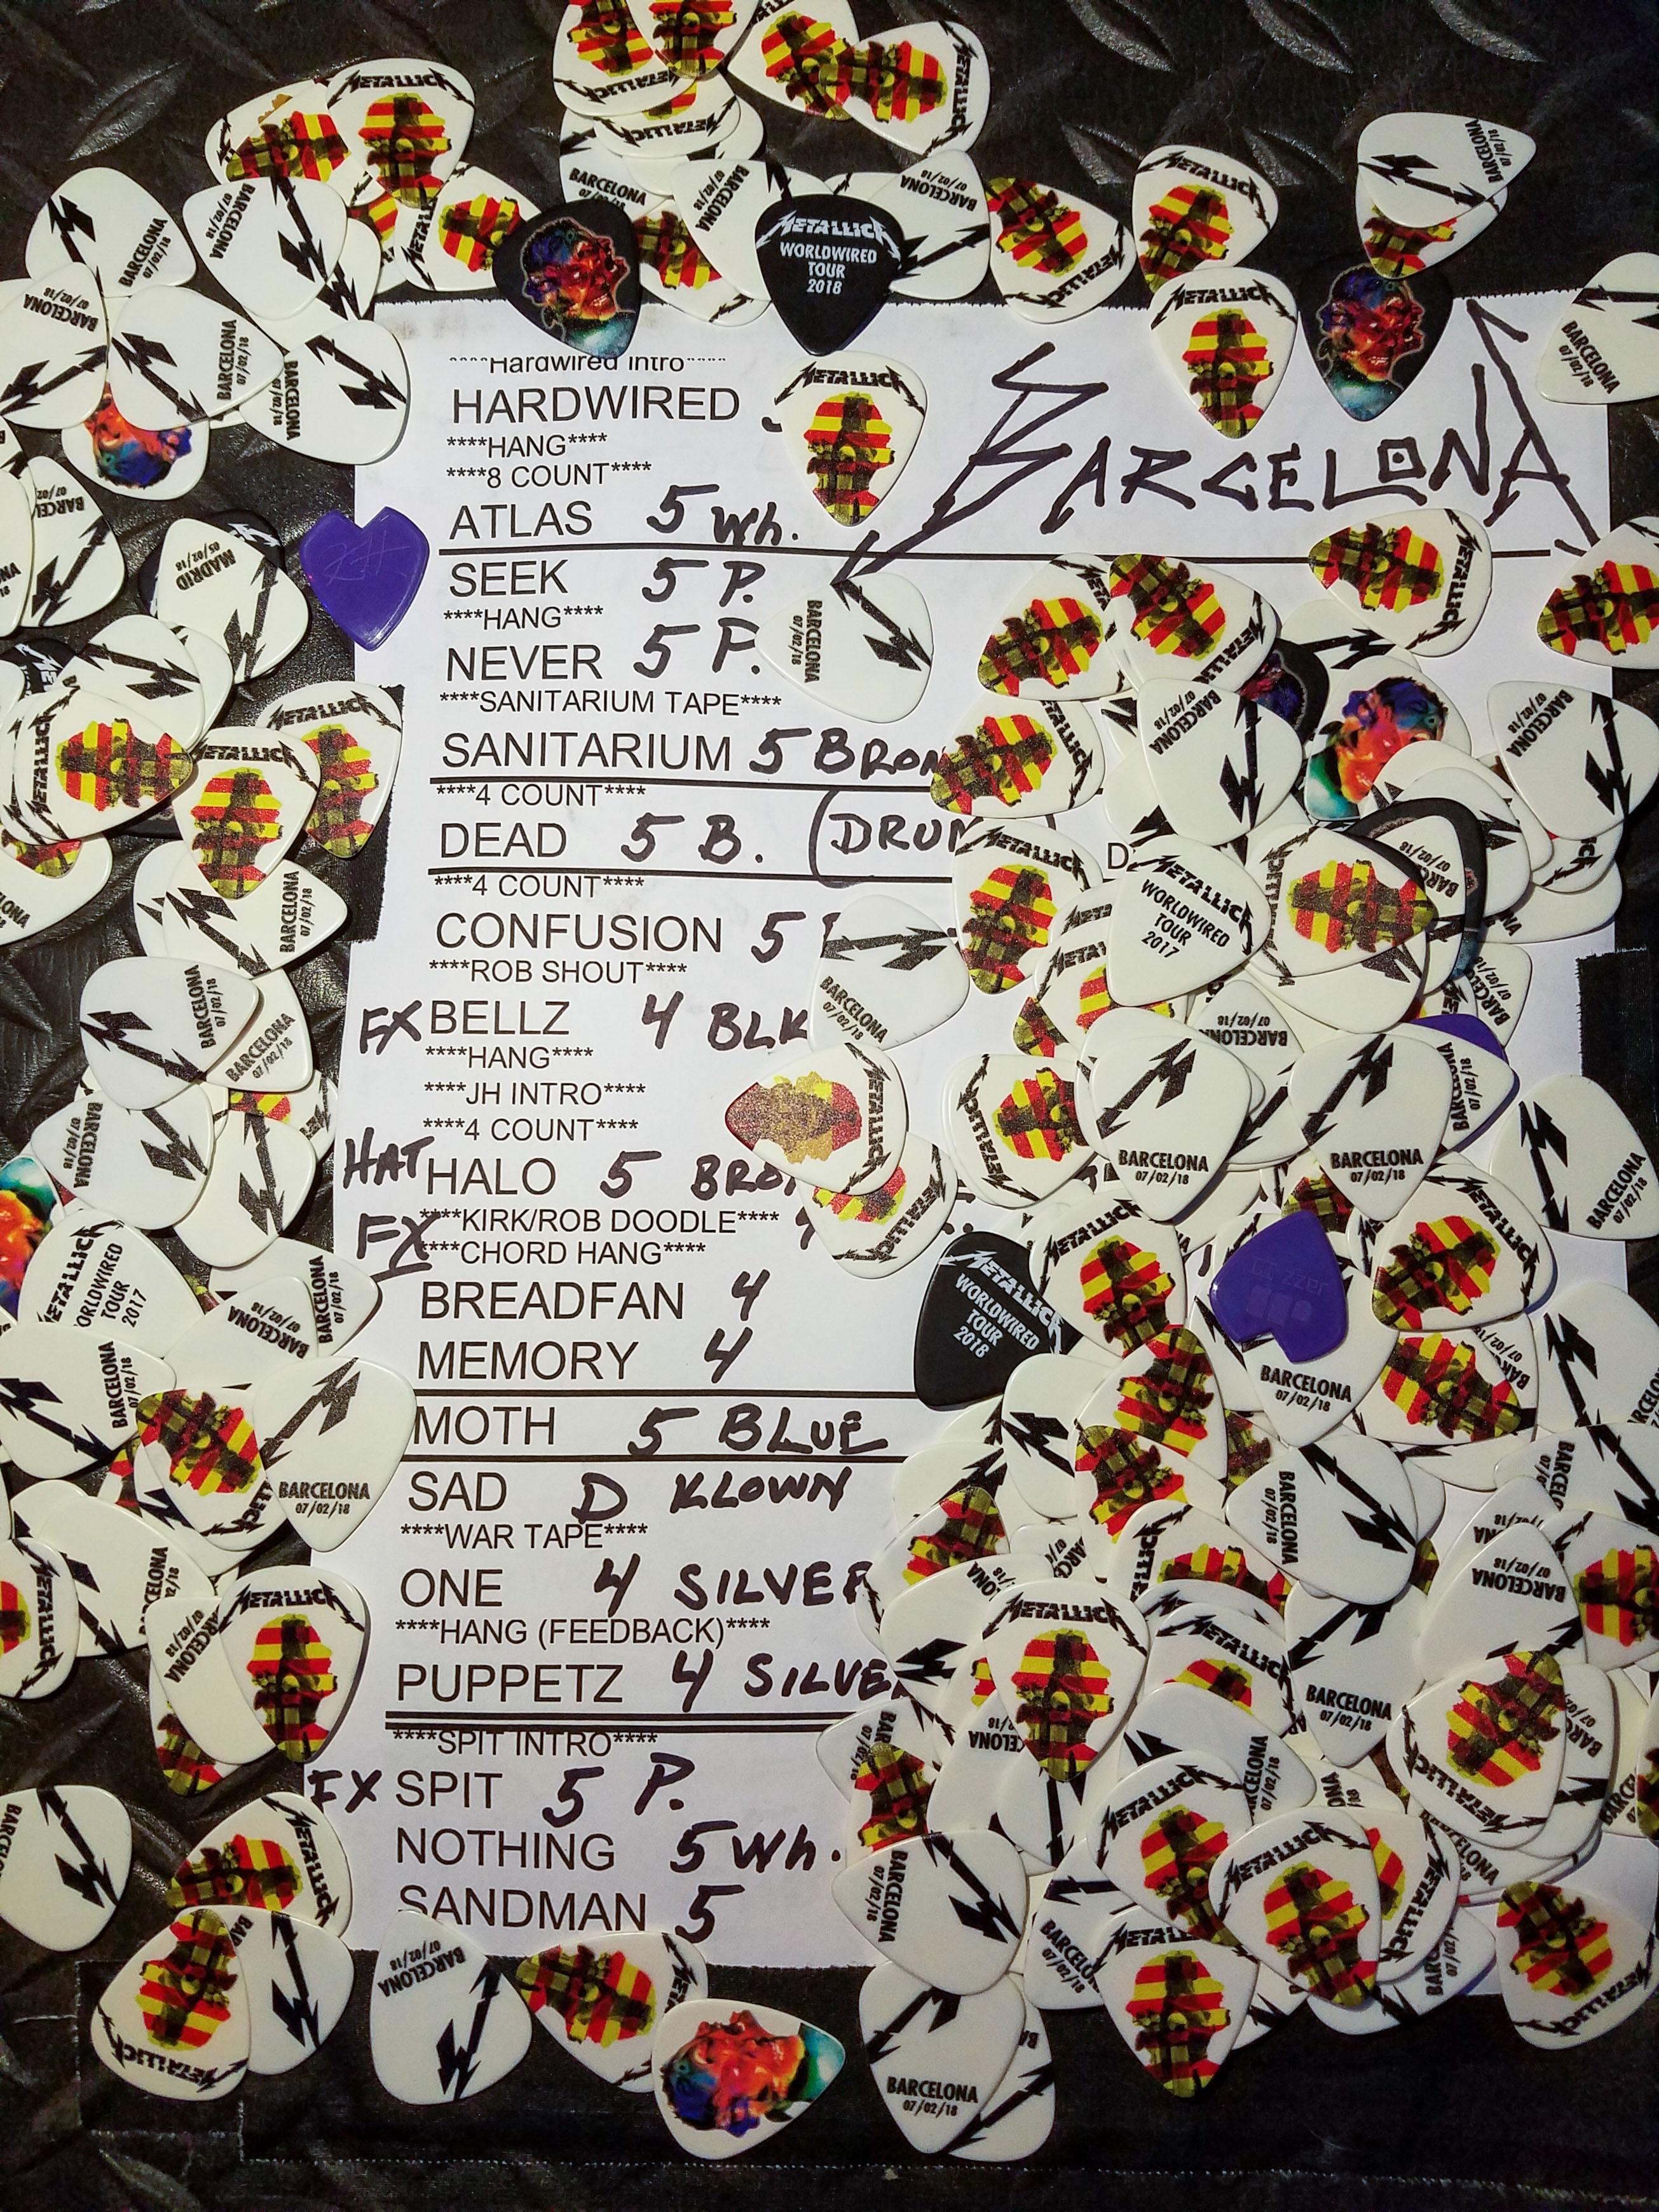 ****Hardwired Intro****
HARDWIRED
BARCELONA
****HANG****
****8 COUNT****
ATLAS 5 Wh.
SEEK 5 P.
****HANG****
NEVER 5 P.
****SANITARIUM TAPE****
SANITARIUM 5 BRON
****4 COUNT****
DEAD 5 B. (DRUM
****4 COUNT****
CONFUSION 5
****ROB SHOUT****
FX BELLZ 4 BLK
****HANG****
****JH INTRO****
****4 COUNT****
HAT HALO 5 BRO
FX ****KIRK/ROB DOODLE****
****CHORD HANG****
BREADFAN 4
MEMORY 4
MOTH 5 BLUE
SAD D KLOWN
****WAR TAPE****
ONE 4 SILVER
****HANG (FEEDBACK)****
PUPPETZ 4 SILVE
****SPIT INTRO****
FX SPIT 5 P.
NOTHING 5 Wh.
SANDMAN 5
METALLICA
WORLDWIRED
TOUR
2018
METALLICA
WORLDWIRED
TOUR
2017
METALLICA
WORLDWIRED
TOUR
2018
BARCELONA
07/02/18
MADRID
05/02/18
METALLICA